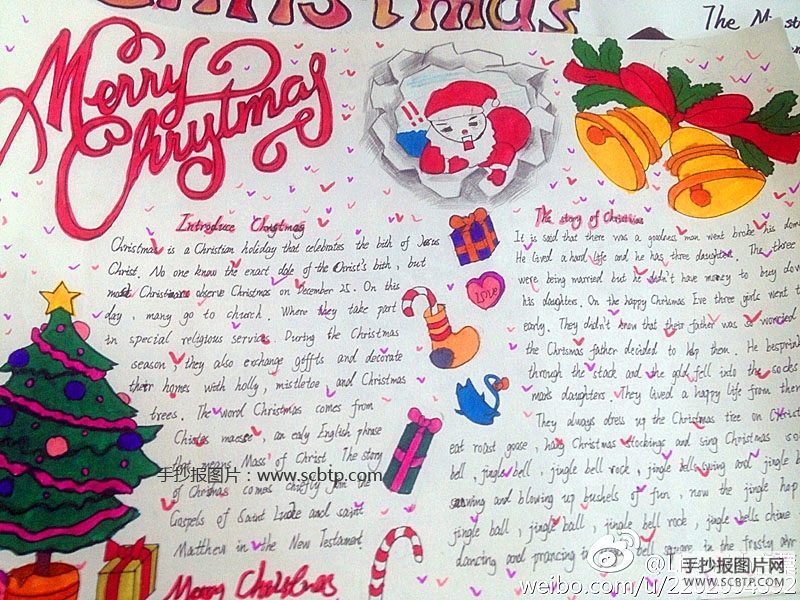 Christmas
The M
Merry
Chrytmas
Introduce Chrstmas
Christmas is a Christian holiday that celebrates the bith of Jesus
Christ. No one know the exact date of the Christ's bith, but
most Christians observe Christmas on December 25. On this
day, many go to church. Where they take part
in special religious services. During the Christmas
season, they also exchange gifts and decorate
their homes with holly, mistletoe, and Christmas
trees. The word Christmas comes from
Christes maesse, an ealy English phrase
that means Mass of Christ. The story
of Christmas comes chiefly from the
Gospels of Saint Lucke and saint
Matthew in the New Testament.
Merry Christmas
LOVE
The story of Christmas
It is said that there was a goodness man went broke his
He lived a hard life and he has three daughter. The three
were being married but he didn't have money to buy
his daughters. On the happy Chrismas Eve three girls went t
early. They didn't know that their father was so worried
the Chrismas father decided to help them. He besprin
through the stack and the gold fell into the socks
man's daughters. They lived a happy life from then
They always dress up the Christmas tree on Christ
eat roast goose, hang Christmas stockings and sing Christmas so
bell, jingle bell, jingle bell rock, jingle bells swing and jingle b
snowing and blowing up bushels of fun, now the jingle hop
jingle ball, jingle ball, jingle bell rock, jingle bells chime
dancing and prancing in bell square in the frosty
手抄报图片：www.scbtp.com
手抄报图片网
WWW.SCBTP.COM
weibo.com/u/2292994392